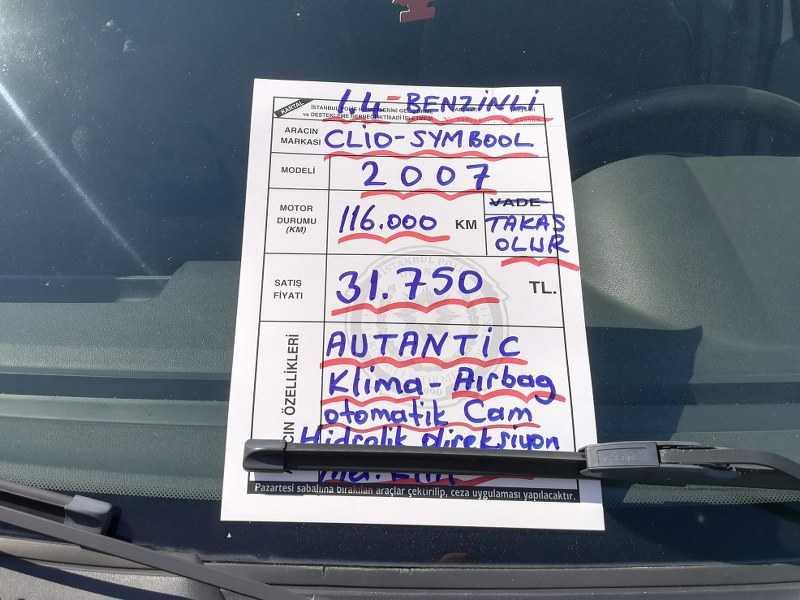 1.4 - BENZİNLİ
KARTAL
ve DESTEKLEME DERNEĞİ İKTİSADİ İŞLETMESİ
ARACIN MARKASI CLİO-SYMBOOL
MODELİ 2007
MOTOR DURUMU (KM) 116.000 KM
VADE
TAKAS OLUR
SATIŞ FİYATI 31.750 TL.
AUTANTİC
Klima - Airbag
otomatik Cam
Hidrolik direksiyon
ÖZELLİKLERİ
Pazartesi sabahına bırakılan araçlar çekilip, ceza uygulaması yapılacaktır.